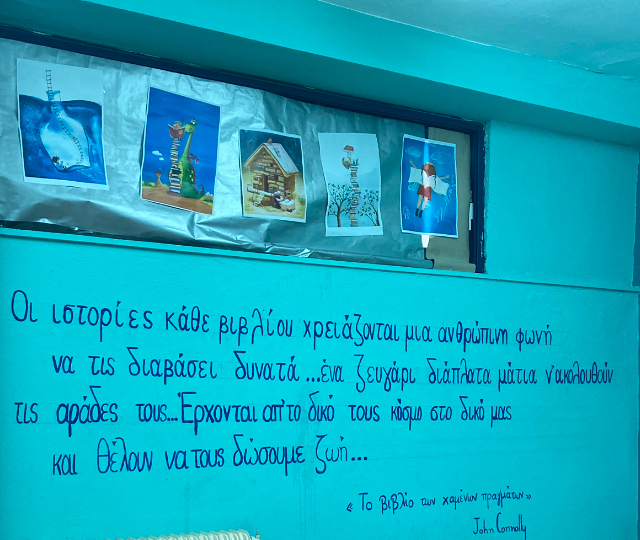 Οι ιστορίες κάθε βιβλίου χρειάζονται μια ανθρώπινη φωνή
να τις διαβάσει δυνατά...ένα ζευγάρι διάπλατα μάτια ν'ακολουθούν
τις αράδες τους...Έρχονται απ'το δικό τους κόσμο στο δικό μας
και θέλουν να τους δώσουμε ζωή...
«Το βιβλίο των χαμένων πραγμάτων»
John Connolly